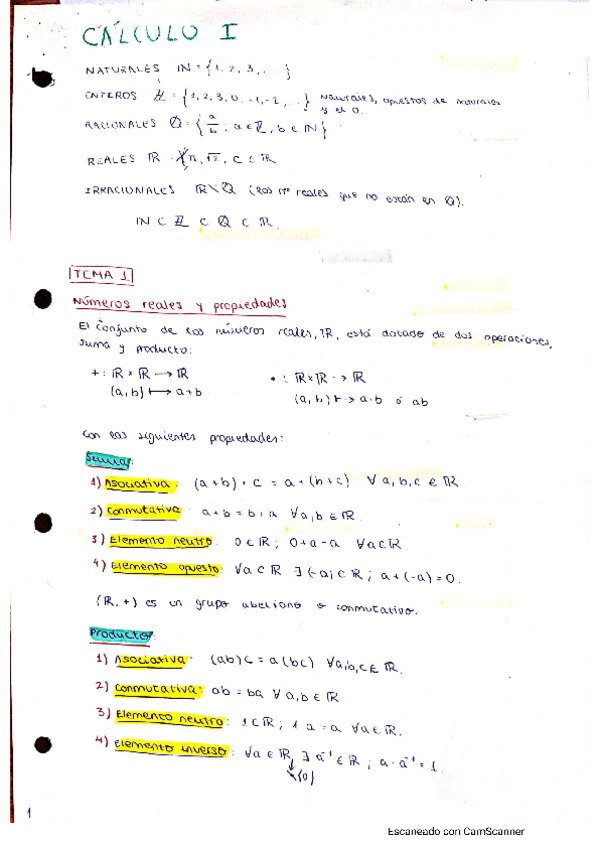 CÁLCULO I
NATURALES ℕ = {1, 2, 3, ...}
ENTEROS ℤ = {1, 2, 3, 0, -1, -2, ...} Naturales, opuestos de naturales
y el 0.
RACIONALES ℚ = {a/b ; a ∈ ℤ, b ∈ ℕ}
REALES ℝ π, √2, C ∈ ℝ
IRRACIONALES ℝ\ℚ (Los nº reales que no están en ℚ).
ℕ ⊂ ℤ ⊂ ℚ ⊂ ℝ.
TEMA 1
Números reales y propiedades
El conjunto de los números reales, ℝ, está dotado de dos operaciones,
suma y producto:
+ : ℝ × ℝ → ℝ
(a, b) ↦ a + b
• : ℝ × ℝ → ℝ
(a, b) ↦ a·b ó ab
Con las siguientes propiedades:
Suma:
1) Asociativa: (a + b) + c = a + (b + c) ∀ a, b, c ∈ ℝ
2) Conmutativa: a + b = b + a ∀ a, b ∈ ℝ.
3) Elemento neutro: 0 ∈ ℝ ; 0 + a = a ∀ a ∈ ℝ
4) Elemento opuesto: ∀ a ∈ ℝ ∃ (-a) ∈ ℝ ; a + (-a) = 0.
(ℝ, +) es un grupo abeliano o conmutativo.
Producto:
1) Asociativa: (ab)c = a(bc) ∀ a, b, c ∈ ℝ.
2) Conmutativa: ab = ba ∀ a, b ∈ ℝ
3) Elemento neutro: 1 ∈ ℝ ; 1 a = a ∀ a ∈ ℝ.
4) Elemento inverso: ∀ a ∈ ℝ, ∃ a⁻¹ ∈ ℝ ; a · a⁻¹ = 1.
\{0}
1
Escaneado con CamScanner